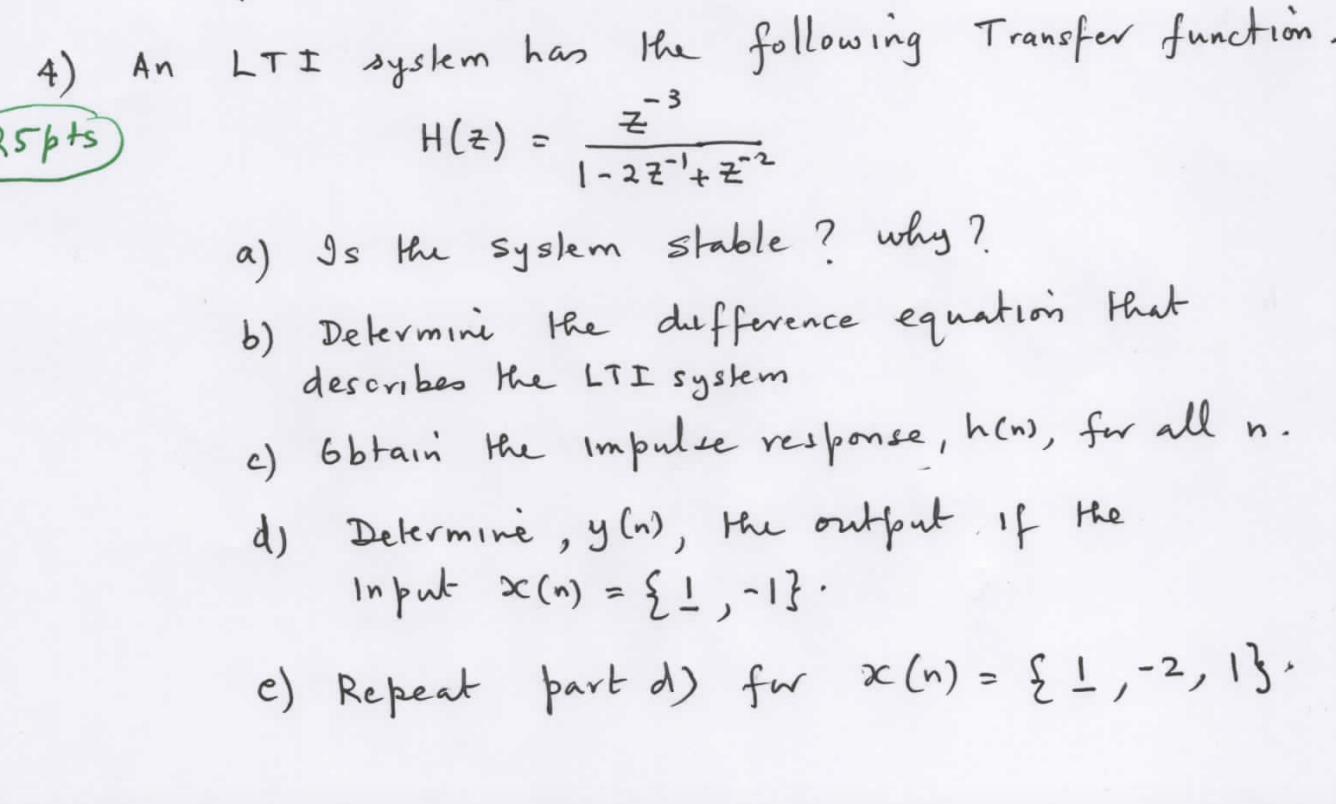 4) An LTI system has the following Transfer function.
25pts
H(z) = z^-3 / (1 - 2z^-1 + z^-2)
a) Is the system stable? why?
b) Determine the difference equation that
describes the LTI system
c) Obtain the impulse response, h(n), for all n.
d) Determine, y(n), the output if the
Input x(n) = {1, -1}.
e) Repeat part d) for x(n) = {1, -2, 1}.